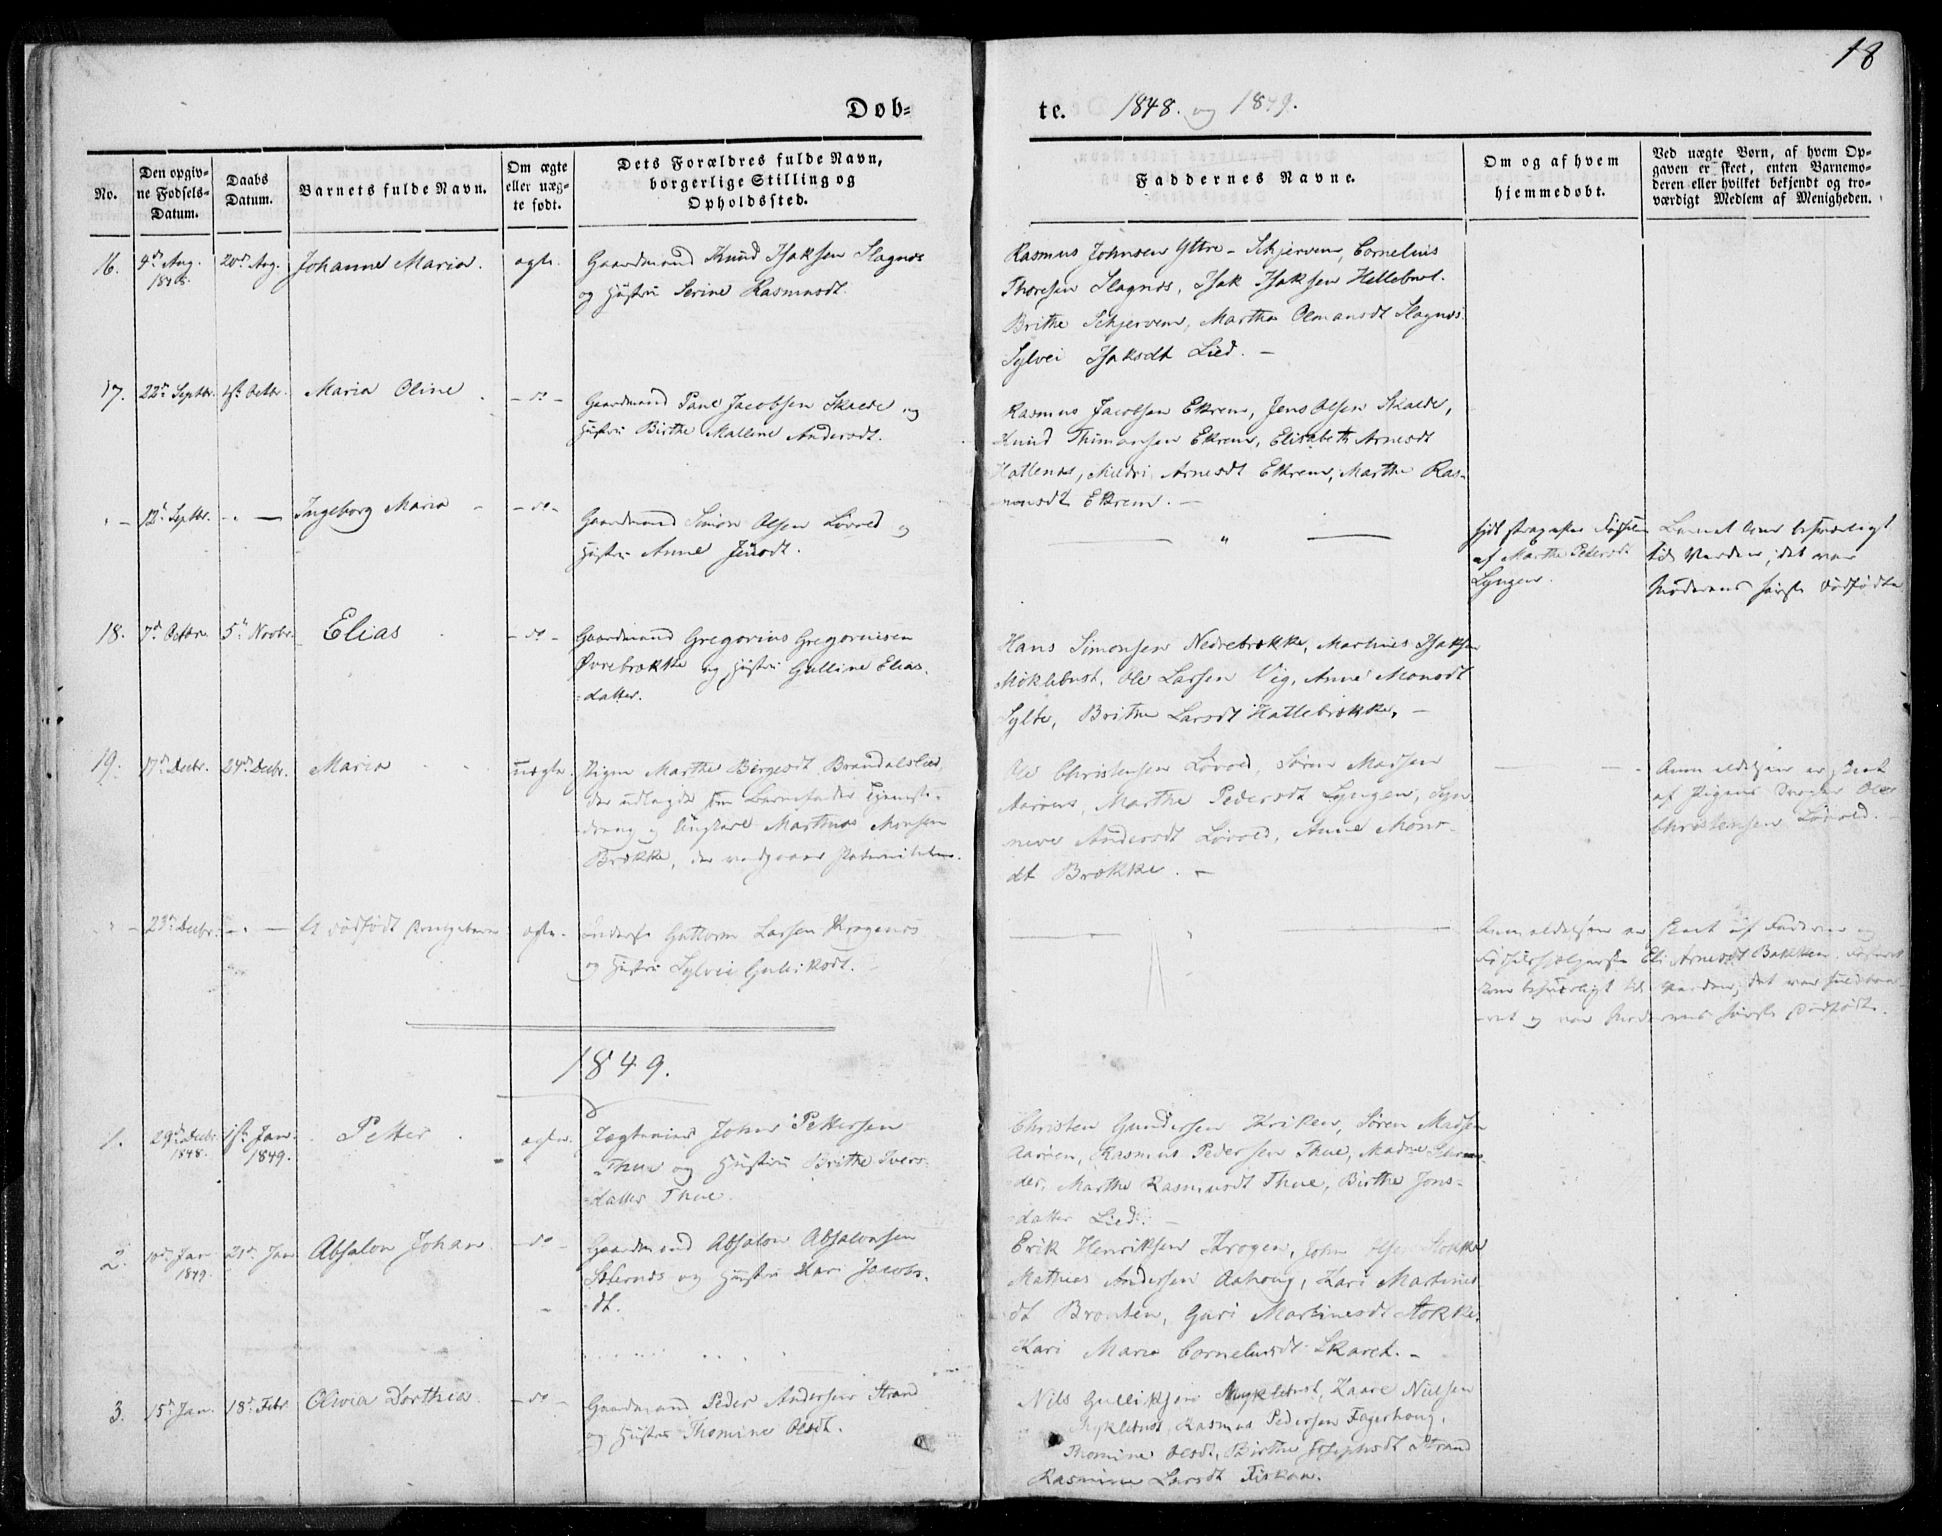 18
Døb-
te. 1848. og 1849.
No.
Den opgiv-
ne Fødsels-
Datum.
Daabs
Datum.
Barnets fulde Navn.
Om ægte
eller uæg-
te født.
Dets Forældres fulde Navn,
borgerlige Stilling og
Opholdssted.
Faddernes Navne.
Om og af hvem
hjemmedøbt.
Ved uægte Børn, af hvem Op-
gaven er skeet, enten Barnemo-
deren eller hvilket bekjendt og tro-
værdigt Medlem af Menigheden.
16. 9d Aug. 1848. 20d Aug. Johanne Maria. ægte.
Gaardmand Knud Isaksen Slagnes
og Hustru Serine Rasmusdt.
Rasmus Johnsen Yttre-Schjerven, Cornelius
Thoresen Slagnes, Isak Isaksen Hellebust.
Brithe Schjerven, Marthe Olmansdt Slagnes.
Sylvei Isaksdt Lied. -
17. 22d Septbr. 1ste Octbr. Maria Oline - do -
Gaardmand Paul Jacobsen Skaede og
Hustru Birthe Malline Andersdt.
Rasmus Jacobsen Ekrem, Jens Olsen Skaede,
Knud Thimansen Ekrem, Elisabeth Arnesdt
Hatlenæs, Mildri Arnesdt Ekrem, Marthe Ras-
musdt Ekrem. -
" - 12d Septbr. - " - Ingeborg Maria - - do -
Gaardmand Simon Olsen Løvold og
Hustru Anne Jensdt.
- " -
af Marthe Pedersdt
Lyngen.
Barnet kom besværligt
til Verden; det var
Moderens første Dødfødte
18. 7d Octbr. 5te Novbr. Elias - do -
Gaardmand Gregorius Gregoriusen
Øvrebrække og Hustru Gulline Elias-
datter.
Hans Simonsen Nedrebrække, Martinus Isaksen
Møklebust, Ole Larsen Vig, Anne Monsdt
Sylte, Brithe Larsdt Hattebrække. -
19. 17d Decbr. 24d Decbr. Maria uægte.
Pigen Marthe Børgesdt Brandalslied,
der udlagde som Barnefader Tjeneste-
dreng og Ungkarl Martinus Monsen
Brække, der vedgaaer Paterniteten.
Ole Christensen Løvold, Søren Madsen
Aarøen, Marthe Pedersdt Lyngen, Syn-
neve Andersdt Løvold, Anne Mons-
dt Brække. -
Anmeldelsen er skeet
af Pigens Svoger Ole
Christensen Løvold. -
" - 23d Decbr. - " - Et dødfødt Drengebarn ægte.
Guttorm Larsen Krogenæs
og Hustru Sylvei Gulliksdt.
- " -
Anmeldelsen er skeet af Faderen og
Fødselshjelpersken Eli Arnesdt Bakken. Fosteret
kom besværligt til Verden; det var fuldbaa-
ret og var Moderens første Dødfødte.
1849.
1. 29d Decbr 1848. 1ste Jan. 1849. Petter ægte.
Jægteeier John Pettersen
Thue og Hustru Brithe Ivers-
datter Thue.
Christen Gundersen Kriken, Søren Madsen
Aarøen, Rasmus Pedersen Thue, Madme
Marthe Rasmusdt Thue, Birthe Jons-
datter Lied. -
2. 10d Jan 1849. 21d Jan Absalon Johan - do -
Gaardmand Absalon Absalonsen
Sæternæs og Hustru Kari Jacobs-
dt.
Erik Henriksen Krogen, John Olsen Stokke
Mathias Andersen Aahoug, Kari Martines
dt Brauten, Guri Martinesdt Stokke,
Kari Marie Corneliusdt Skaret. -
3. 15d Jan. 18d Febr. Olivia Dorthea - do -
Gaardmand Peder Andersen Strand
og Hustru Thomine Olsdt.
Nils Gulliksen Myklebust, Kaare Nielsen
Myklebust, Rasmus Pedersen Fagerhoug,
Thomine Olsdt, Birthe Josephsdt Strand
Rasmine Larsdt Fiskaa.